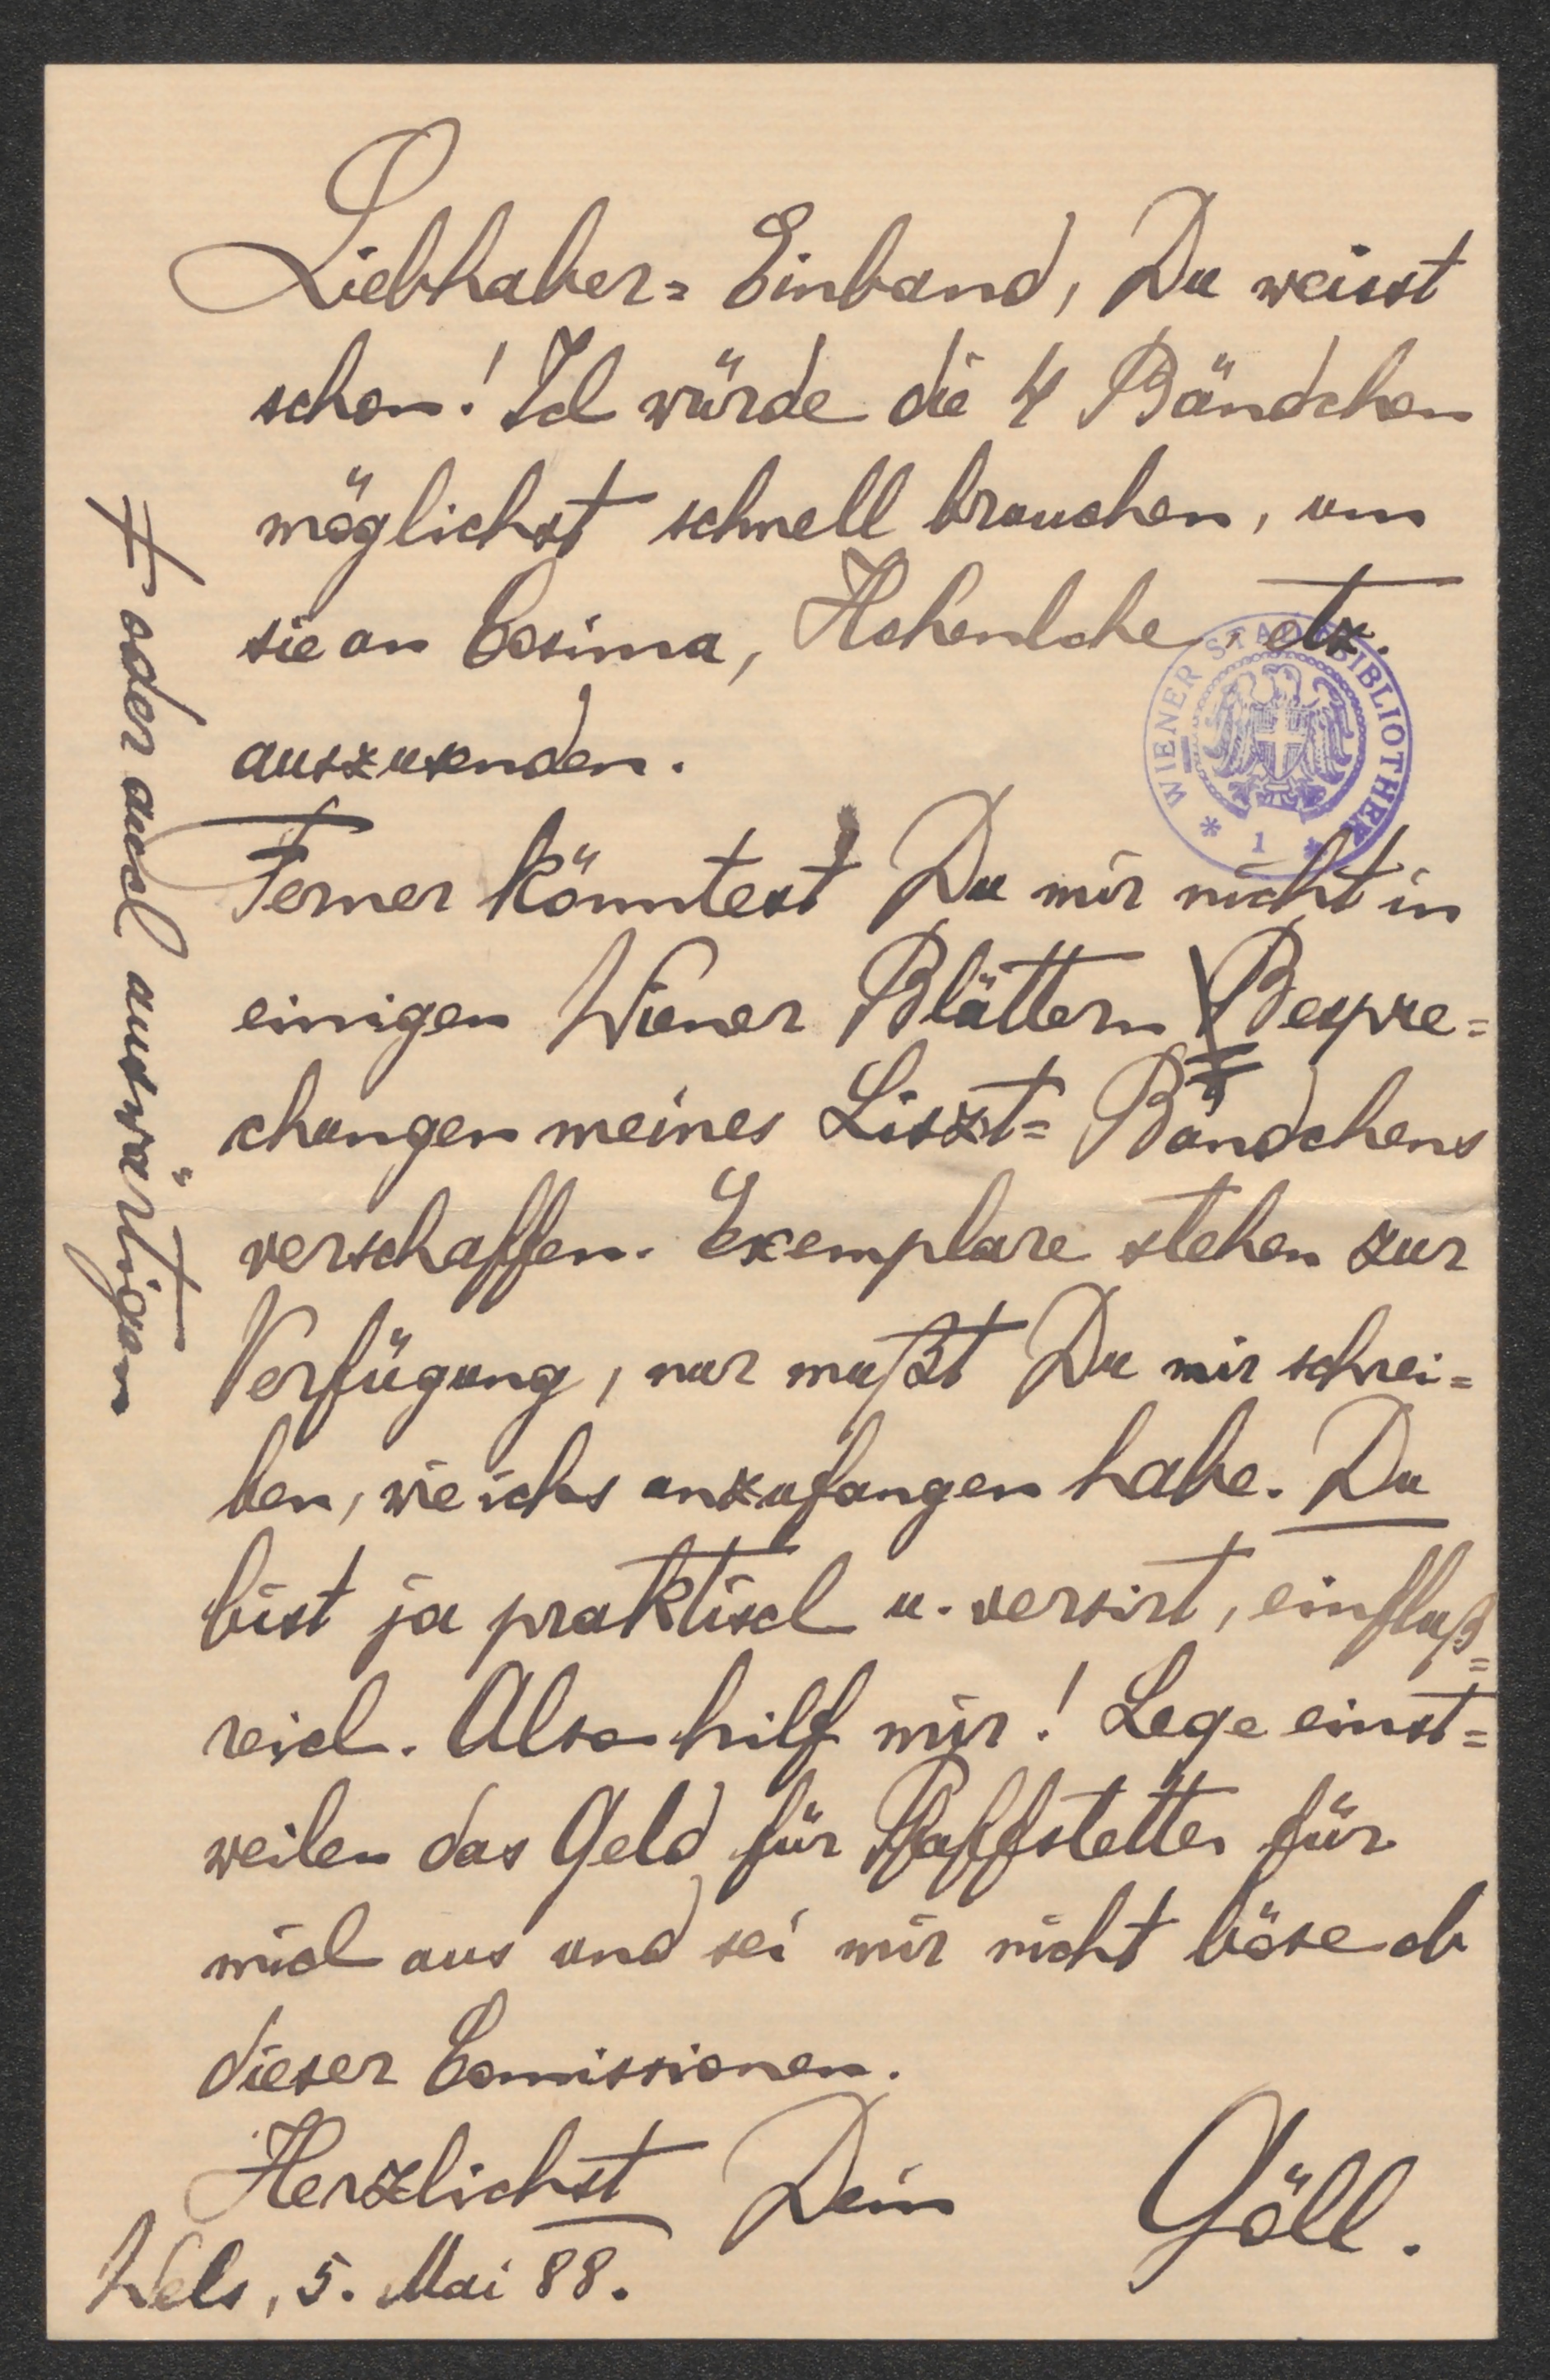 Liebhaber= Einband, Du weisst
schon! Ich würde die 4 Bändchen
möglichst schnell brauchen, um
sie an Cosima, Hohenlohe etz.
auszusenden.
Ferner könntest Du mir nicht in
einigen Wiener Blättern Bespre=
chungen meines Liszt= Bändchens
verschaffen. Exemplare stehen zur
Verfügung, nur mußt Du mir schrei=
ben, wie ichs anzufangen habe. Du
bist ja praktisch u. versirt, einfluß=
reich. Also hilf mir! Lege einst=
weilen das Geld für Pfaffstetter für
mich aus und sei mir nicht böse ob
dieser Comissionen.
Herzlichst Dein Göll.
Wels, 5. Mai 88.
oder auch auswärtigen
WIENER STADTBIBLIOTHEK
* 1 *